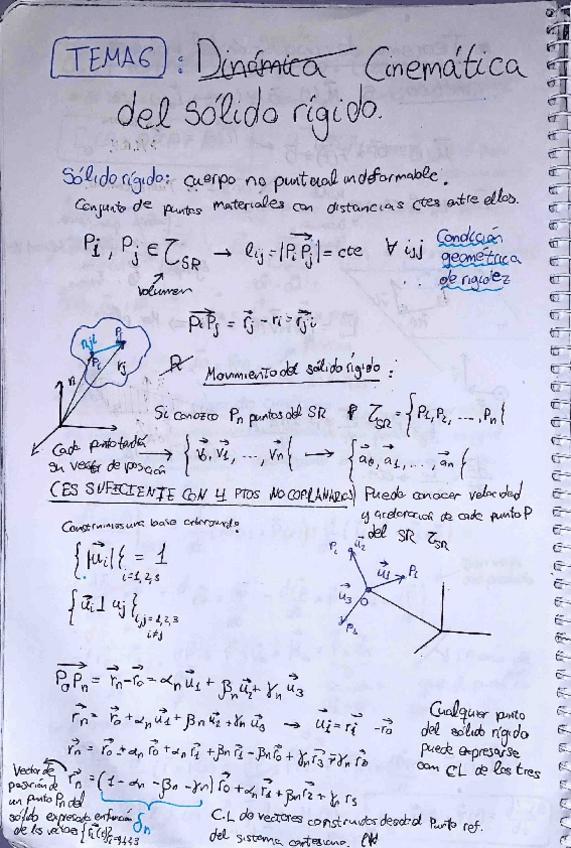 TEMA 6 : Dinámica Cinemática
del sólido rígido.
Sólido rígido: cuerpo no puntual indeformable.
Conjunto de puntos materiales con distancias ctes entre ellos.
Pi, Pj ∈ τSR → lij = |PiPj| = cte ∀ i≠j
Condición
geométrica
de rigidez
volumen
PiPj = rj - ri = rji
Movimiento del sólido rígido:
Si conozco Pn puntos del SR τSR = {P1, P2, ..., Pn}
Cada punto tendrá
su vector de posición
→ {v0, v1, ..., vn} → {a0, a1, ..., an}
(ES SUFICIENTE CON 4 PTOS NO COPLANARIOS)
Puedo conocer velocidad
y aceleración de cada punto P
del SR τSR
Construimos una base
{|ui|} = 1
i=1,2,3
{ui ⊥ uj}
i,j=1,2,3
i≠j
P0Pn = rn - r0 = αn u1 + βn u2 + γn u3
rn = r0 + αn u1 + βn u2 + γn u3 → ui = ri - r0
rn = r0 - αn r0 + αn r1 + βn r2 - βn r0 + γn r3 - γn r0
rn = (1 - αn - βn - γn) r0 + αn r1 + βn r2 + γn r3
δn
Cualquier punto
del sólido rígido
puede expresarse
con CL de los tres
Vector de
posición de
un punto Pn del
sólido expresado en función
de los vectores
C.L de vectores construidos desde el Punto ref.
del sistema cartesiano.